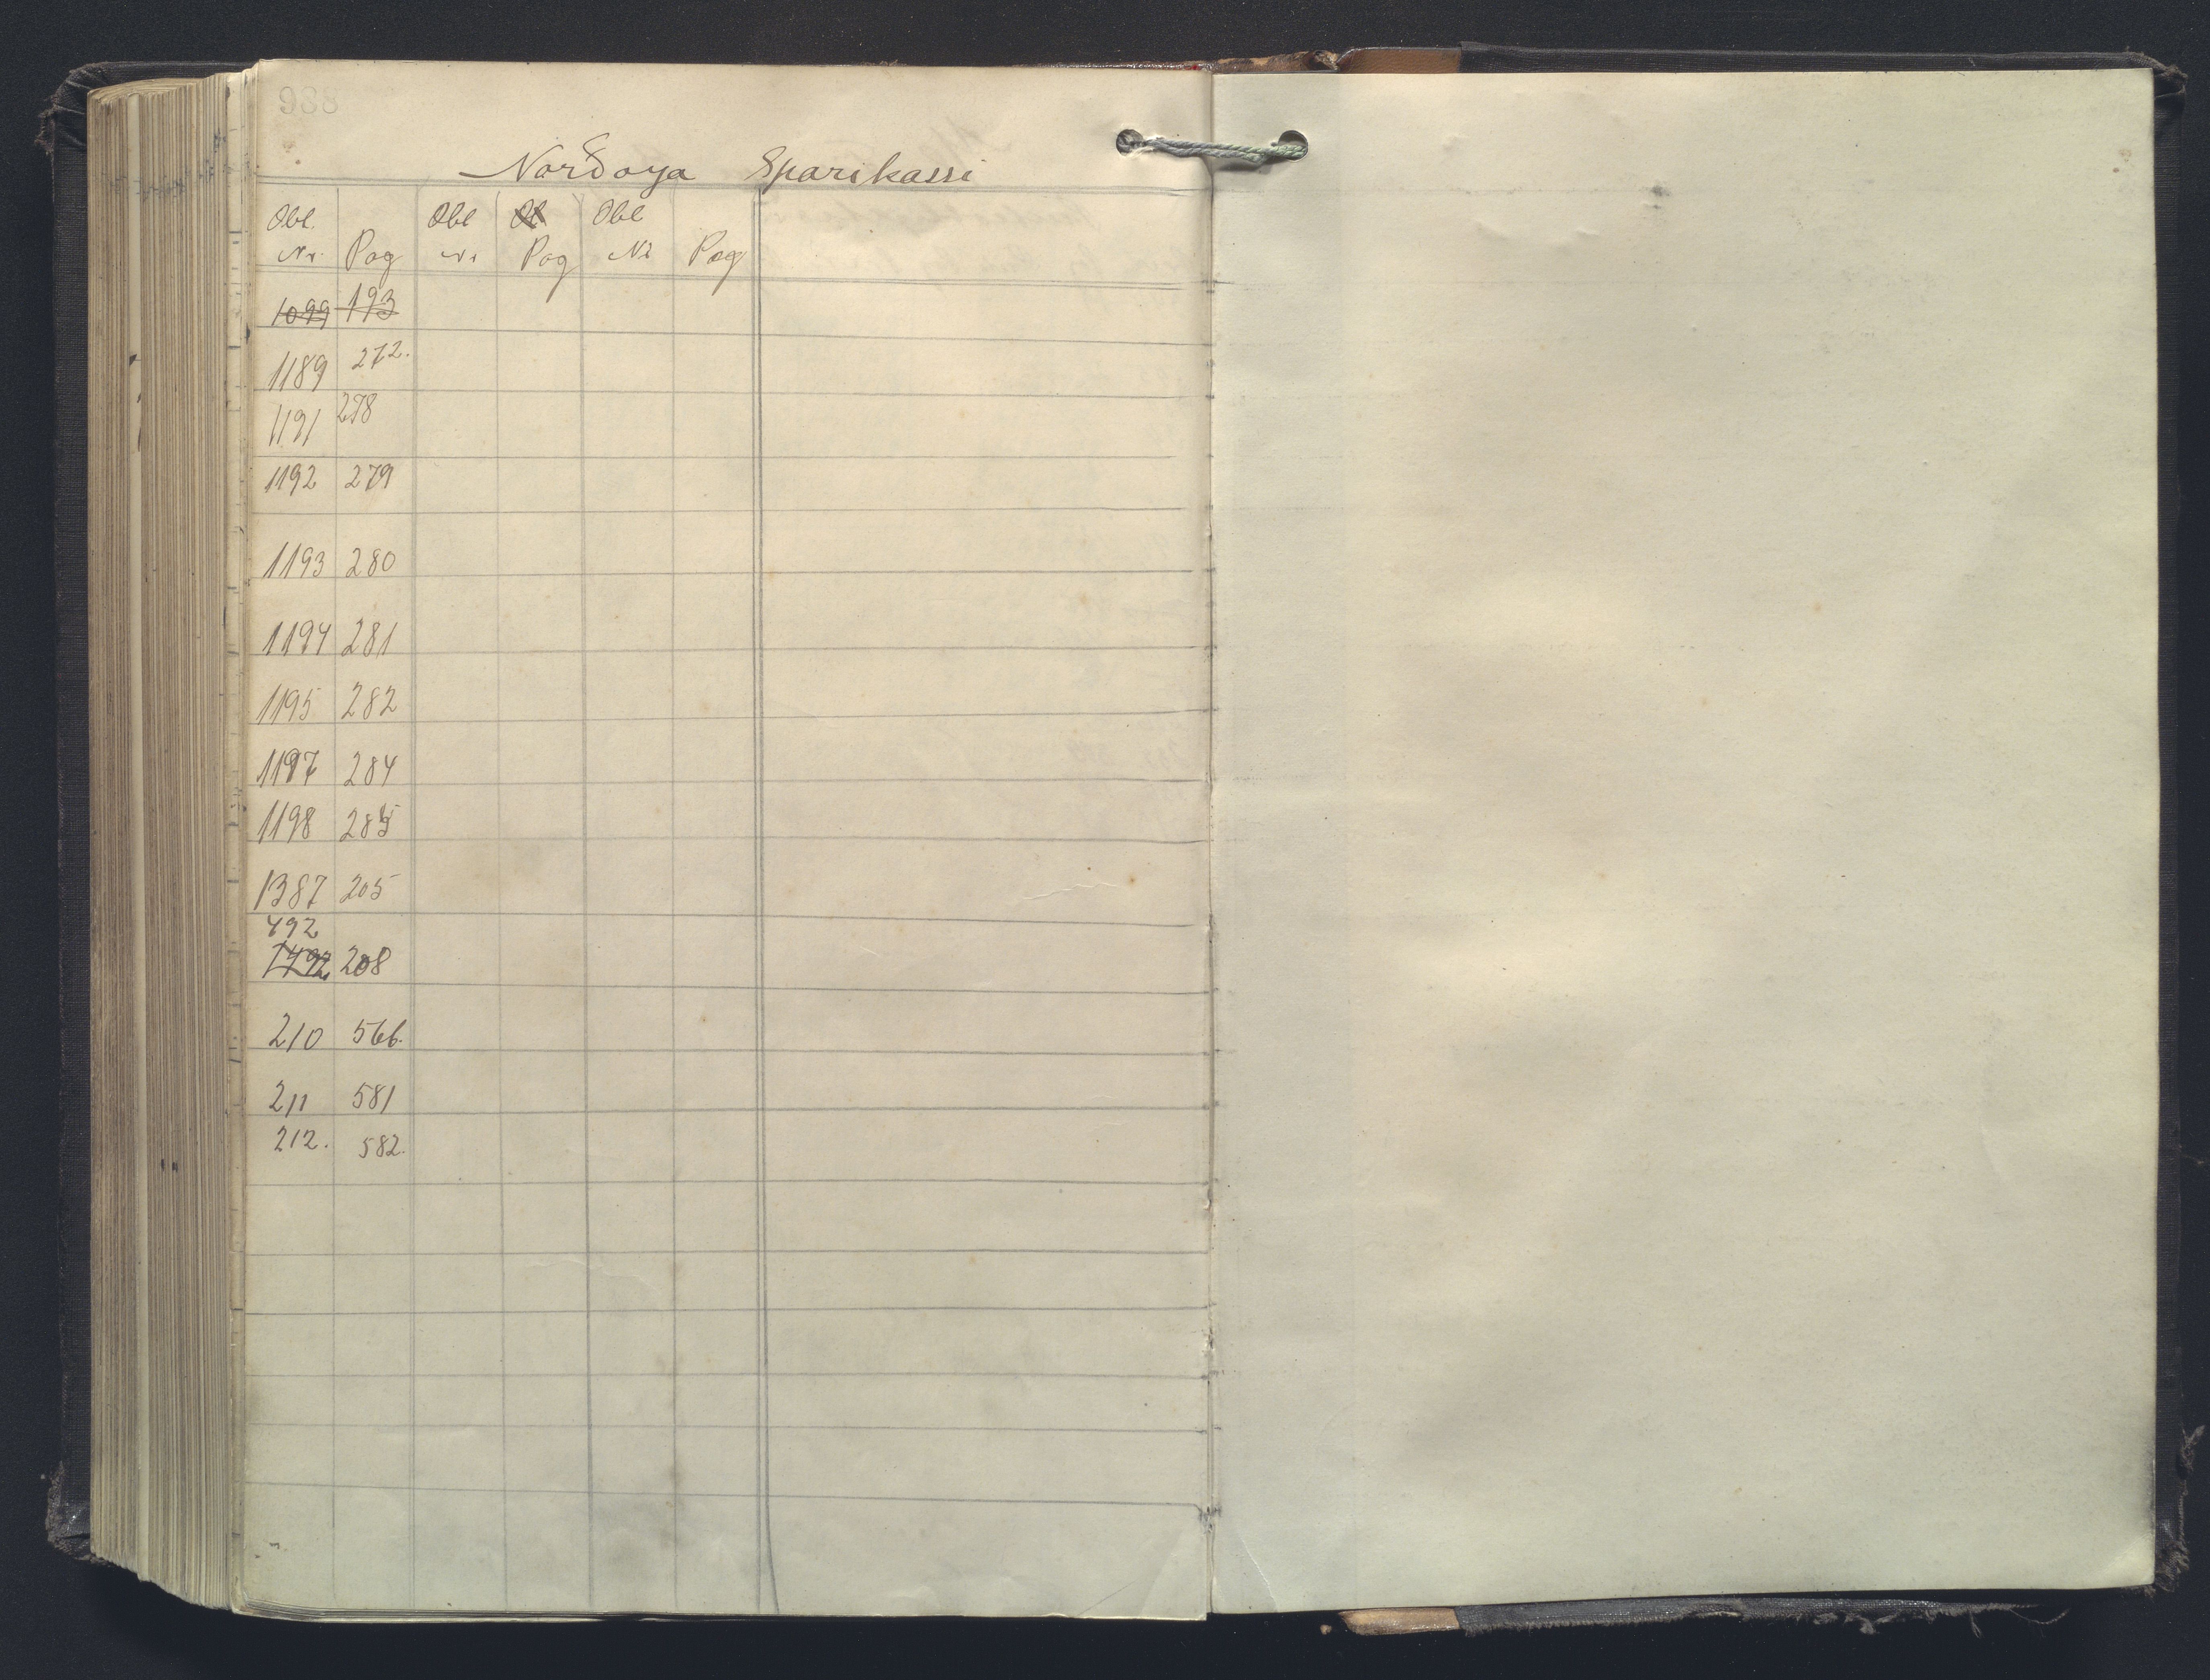 938
Norðoya Sparikassi
Obl. Obl Obl
Nr. Pag Nr Pag Nr Pag
1099 193
1189 272.
1191 278
1192 279
1193 280
1194 281
1195 282
1197 284
1198 285
1387 205
492
1492 208
210 566.
211 581
212. 582.